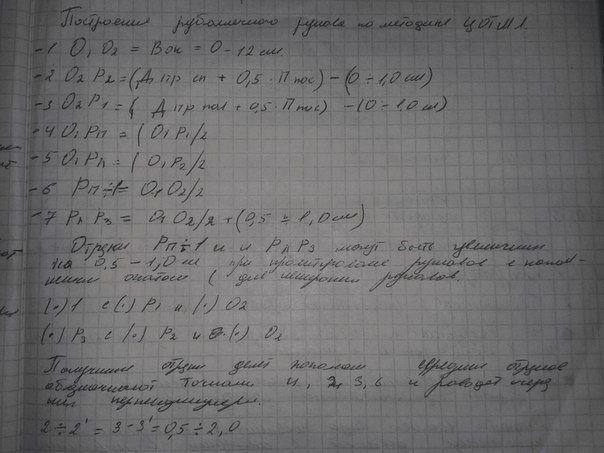 Построения рубашечного рукава по методике ЦОТШЛ.
-1 O₁O₂ = Вок = 0-12 см.
-2 O₂P₂ = (Д пр сп + 0,5 · П пос) - (0 ÷ 1,0 см)
-3 O₂P₁ = ( Д пр пол + 0,5 · П пос) - (0 ÷ 1,0 см)
-4 O₁Pп = ( O₁P₁/2
-5 O₁Pл = ( O₁P₂/2
-6 Pп÷1 = O₁O₂/2
-7 Pл Pз = O₁O₂/2 + (0,5 ÷ 1,0 см)
Отрезки Pп÷1 и и Pл Pз могут быть увеличины
на 0,5 - 1,0 см при проектировании рукавов с
окатом ( для рукавов.
(·) 1 с (·) P₁ и (·) O₂
(·) Pз с (·) P₂ и (·) O₂
Получили отрезки делят пополам середины
обозначают точками 4, 2, 3, 6 и
перпендикуляры.
2 ÷ 2' = 3 - 3' = 0,5 ÷ 2,0